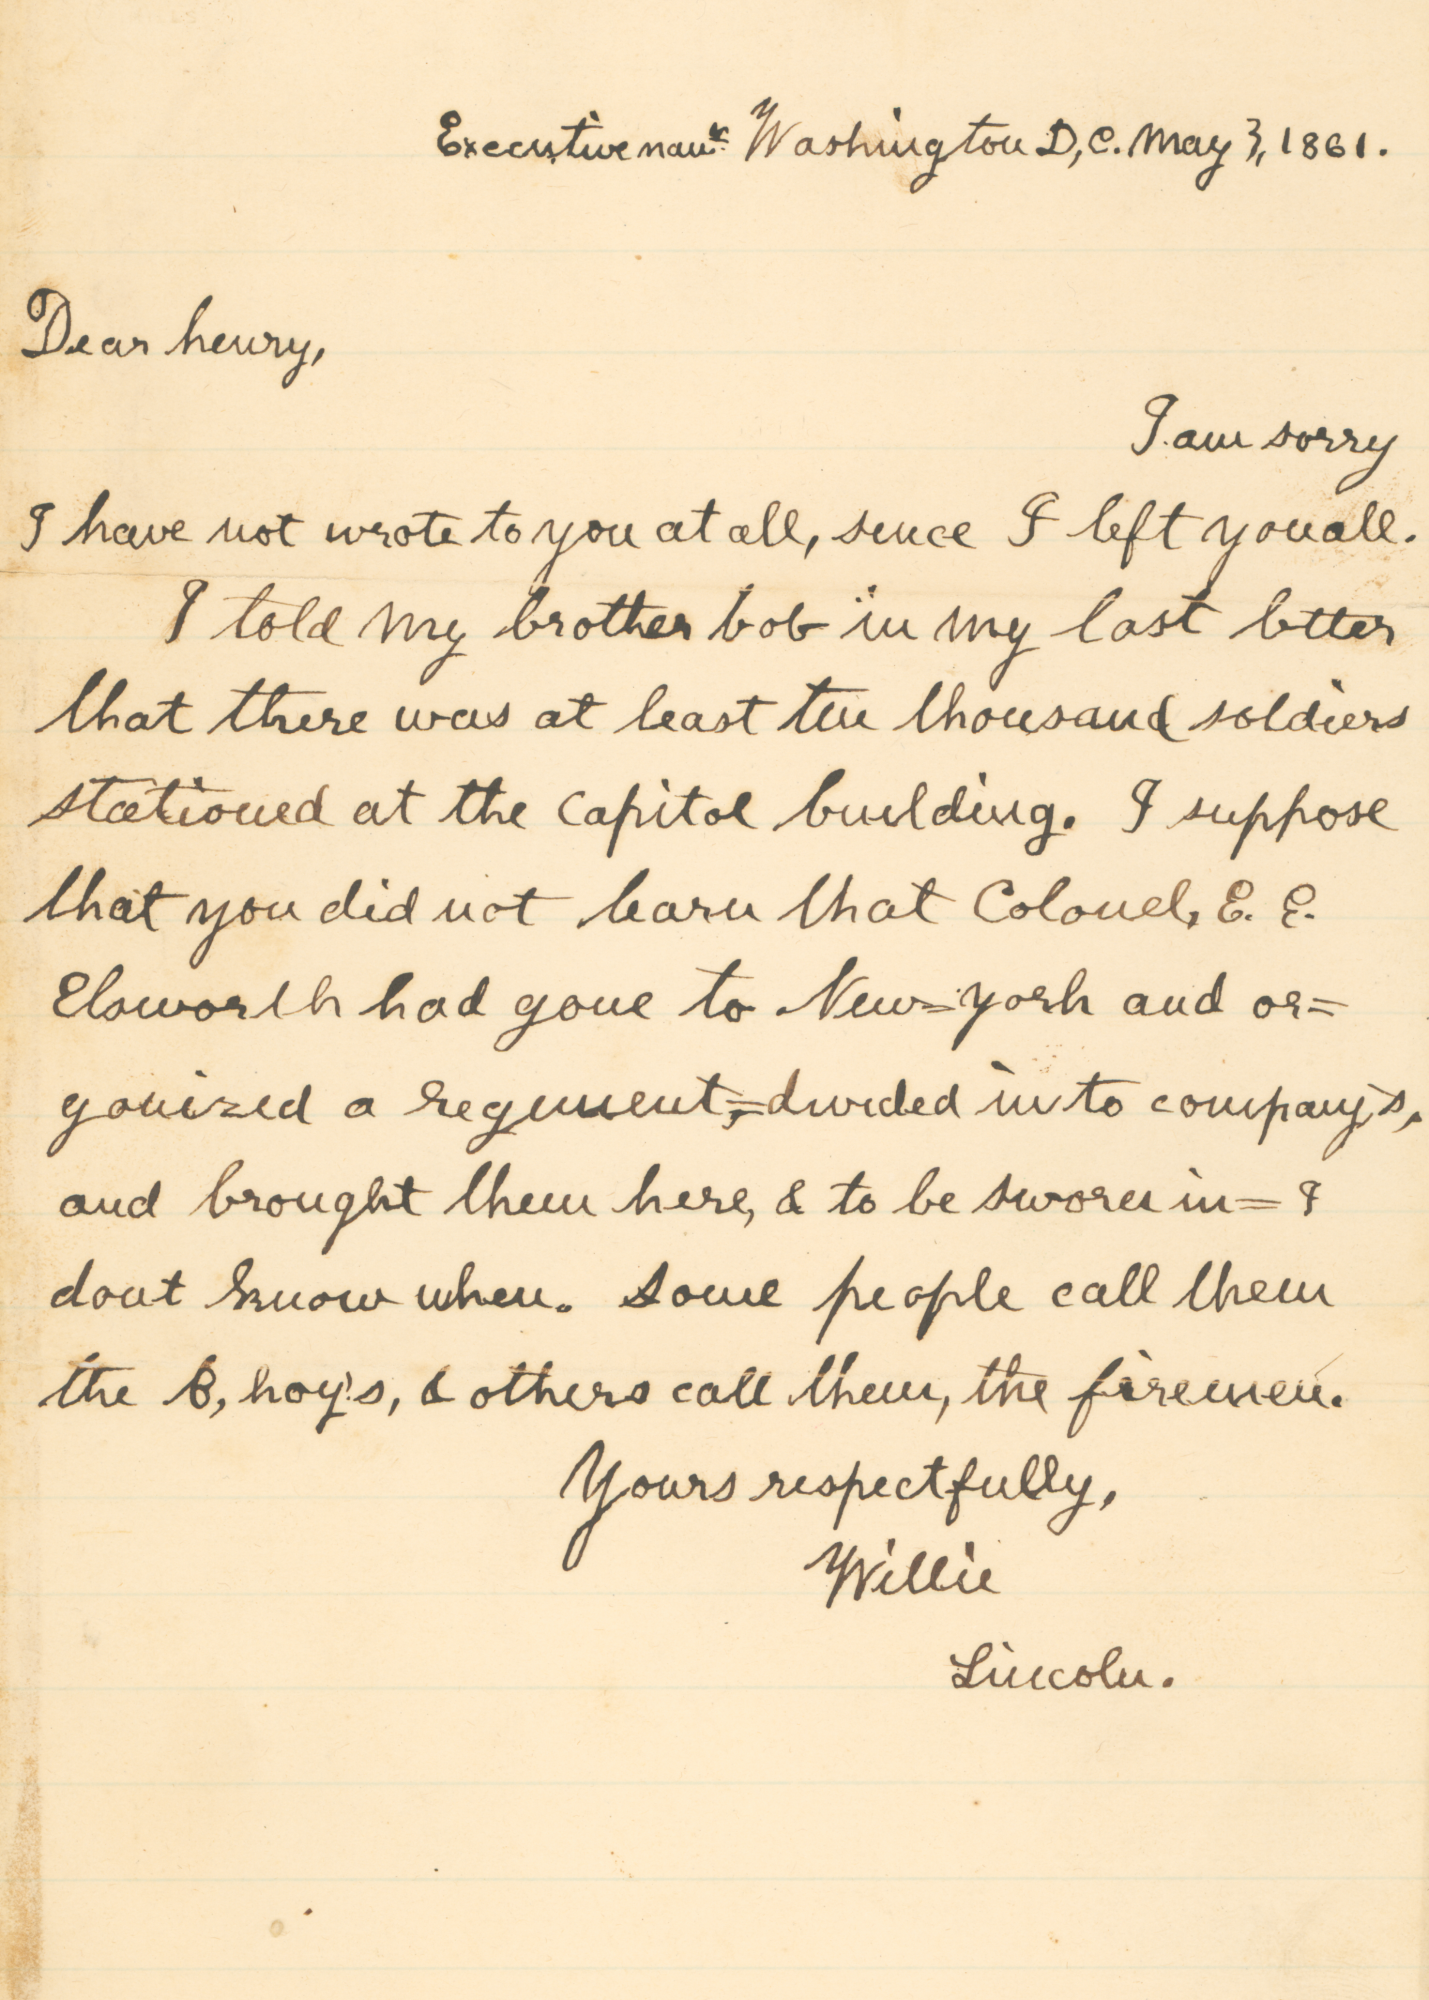 Executive man^s. Washington D, C. May 3, 1861.
Dear henry,
I am sorry
I have not wrote to you at all, since I left you all.
I told my brother bob in my last letter
that there was at least ten thousand soldiers
stationed at the capitol building. I suppose
that you did not learn that Colonel, E. E.
Elsworth had gone to New=york and or=
ganized a regement,=divided in to company's,
and brought them here, & to be sworn in= I
dont know when. Some people call them
the B, hoy's, & others call them, the firemen.
Yours respectfully,
Willie
Lincoln.